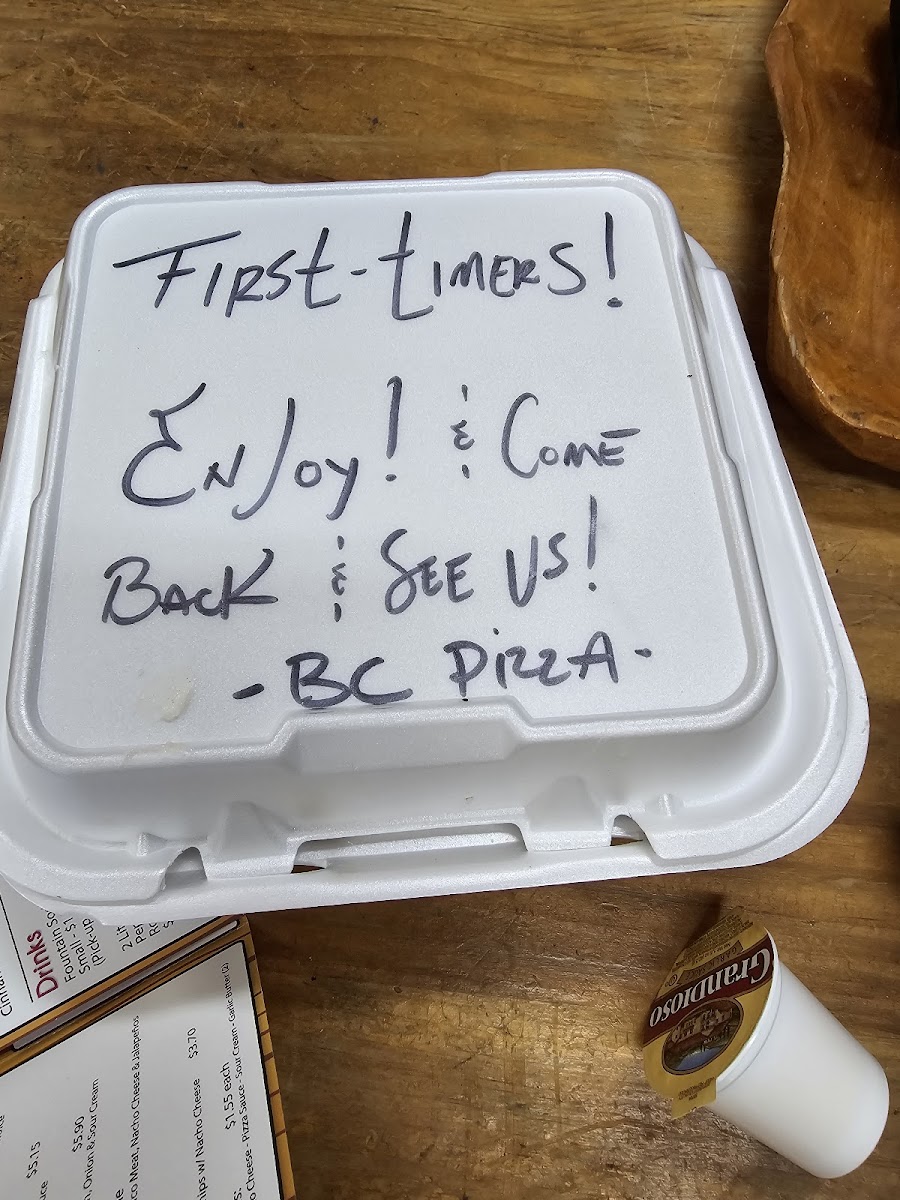 FIRST-TIMERS!
ENJOY! & COME
BACK & SEE US!
- BC PIZZA -
Drinks
Fountain So
Small - $1
(Pick-up
2 Lit
$5.15
$5.90
Onion & Sour Cream
Meat, Nacho Cheese & Jalapeños
w/ Nacho Cheese $3.70
$1.55 each
Cheese - Pizza Sauce - Sour Cream - Garlic Butter (2)
GRANDIOSO